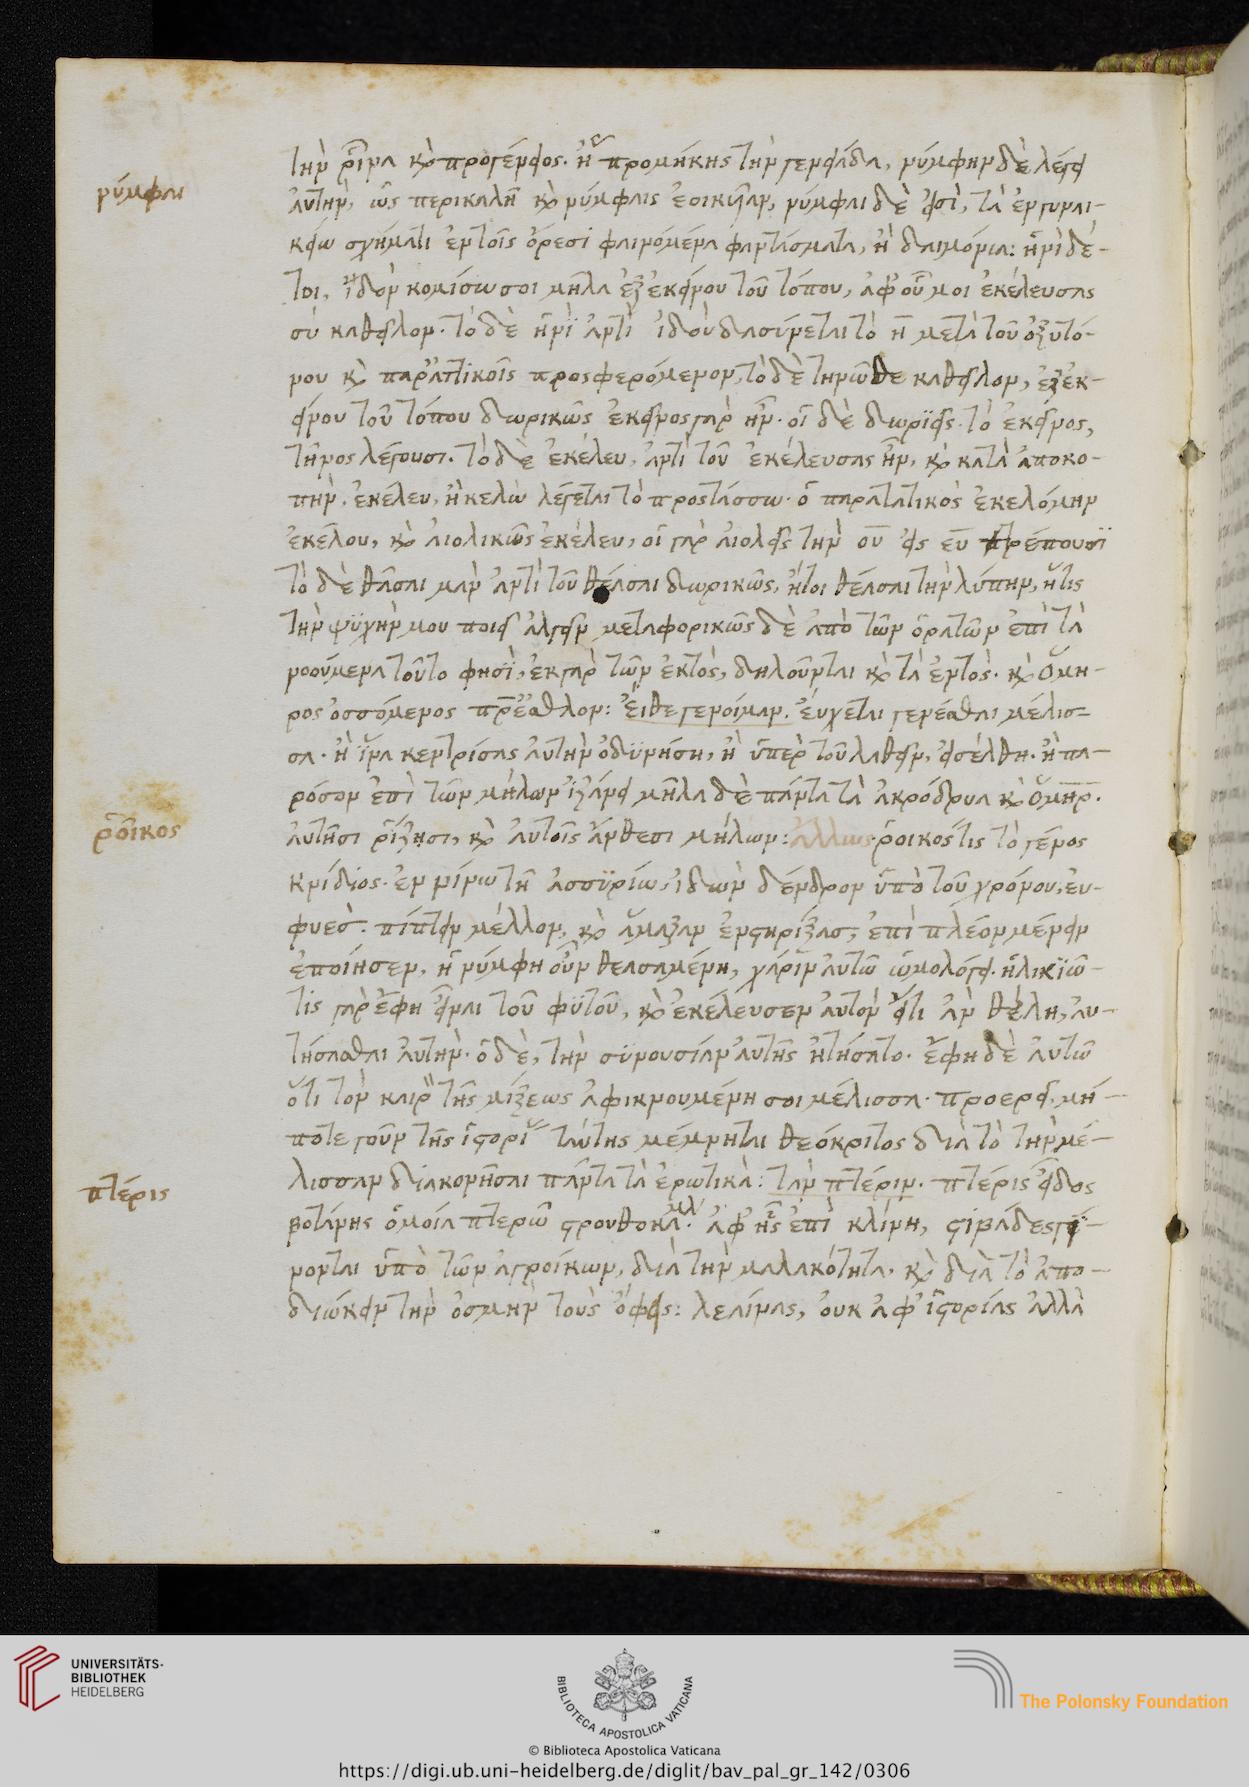 νύμφαι
τὴν ῥῖνα κὶ προγένειος. ἢ προμήκης τὴν γενειάδα, νύμφην δὲ λέγει
αὐτὴν, ὡς περικαλῆ κὶ νύμφαις ἐοικυῖαν, νύμφαι δὲ εἰσὶ, τὰ ἐν γυναι-
κείω σχήματι ἐν τοῖς ὄρεσι φαινόμενα φαντάσματα, ἢ δαιμόνια: ἠνὶ δέ-
τοι, ἰδοὺ κομίσω σοι μῆλα ἐξ ἐκείνου τοῦ τόπου, ἀφ' οὗ μοι ἐκέλευσας
σὺ καθελεῖν. τὸ δὲ ἠνῒ ἀντὶ ἰδοὺ δασύνεται τὸ η μετὰ τοῦ ὀξυτό-
νου κὶ παρ' ἀττικοῖς προσφερόμενον, τὸ δὲ τηνῶθε καθεῖλον, ἐξ ἐκ-
είνου τοῦ τόπου δωρικῶς ἐκεῖνος γὰρ ἦν. οἱ δὲ δωριεῖς τὸ ἐκεῖνος,
τῆνος λέγουσι. τὸ δὲ ἐκέλευ, ἀντὶ τοῦ ἐκέλευσας ἦν, κὶ κατὰ ἀποκο-
πὴν. ἐκέλευ, ἢ κελῶ λέγεται τὸ προστάσσω. ὁ παρατατικὸς ἐκελόμην
ἐκέλου, κὶ αἰολικῶς ἐκέλευ, οἱ γὰρ αἰολεῖς τὴν ου εἰς ευ τρέπουσϊ
τὸ δὲ θᾶσαι μὰν ἀντὶ τοῦ θέασαι δωρικῶς, ἤτοι θέασαι τὴν λύπην, ἥτις
τὴν ψυχήν μου ποιεῖ ἀλγεῖν μεταφορικῶς δὲ ἀπὸ τῶν ὁρατῶν ἐπὶ τὰ
νοούμενα τοῦτο φησὶ, ἐκ γὰρ τῶν ἐκτὸς, δηλοῦνται κὶ τὰ ἐντὸς. κὶ Ὅμη-
ρος ὀσσόμενος
εἴθε γενοίμαν. εὔχεται γενέσθαι μέλισ-
σα. ἢ ἵνα κεντρίσας αὐτὴν ὀδυνήση, ἢ ὑπὲρ τοῦ λαθεῖν, εἰσέλθη. ἢ πα-
ρόσον ἐπὶ τῶν μήλων ἱζάνει μῆλα δὲ πάντα τὰ ἀκρόδρυα κὶ ὅμηρ.
ῥοῖκος
αὐτῆσι ῥίζησι, κὶ αὐτοῖς ἄνθεσι μήλων: ἄλλως ῥοικός τις τὸ γένος
κνίδιος. ἐν νίνω τῆ ἀσσυρίω, ἰδὼν δένδρον ὑπὸ τοῦ χρόνου, εὐ-
φυὲς. πίπτειν μέλλον, κὶ ἅμαξαν ἐνστηρίξας, ἐπὶ πλέον μένειν
ἐποίησεν, ἡ νύμφη οὖν θεασαμένη, χάριν αὐτῶ ὡμολόγει. ἡλικιῶ-
τις γὰρ ἔφη εἶναι τοῦ φυτοῦ, κὶ ἐκέλευσεν αὐτὸν εἴτι ἂν θέλη, αἰ-
τήσασθαι αὐτὴν. ὁ δὲ, τὴν συνουσίαν αὐτῆς ἠτήσατο. ἔφη δὲ αὐτῶ
ὅτι τὸν καιρὸν τῆς μίξεως ἀφικνουμένη σοι μέλισσα. προερεῖ. μή-
ποτε γοῦν τῆς ἱστορί ταύτης μέμνηται θεόκριτος διὰ τὸ τὴν μέ-
πτέρις
λισσαν διακονῆσαι πάντα τὰ ἐρωτικὰ: τὰν πτέριν. πτέρις εἶδος
βοτάνης ὁμοία πτερῶ στρουθοκαμήλ. ἀφ' ἧς ἐπὶ κλίνη, στιβάδες γί-
νονται ὑπὸ τῶν ἀγροίκων, διὰ τὴν μαλακότητα, κὶ διὰ τὸ ἀπο-
διώκειν τὴν ὀσμὴν τοὺς ὄφεις: λεαίνας, οὐκ ἀφ' ἱστορίας ἀλλὰ
UNIVERSITÄTS-
BIBLIOTHEK
HEIDELBERG
BIBLIOTECA APOSTOLICA VATICANA
The Polonsky Foundation
© Biblioteca Apostolica Vaticana
https://digi.ub.uni-heidelberg.de/diglit/bav_pal_gr_142/0306